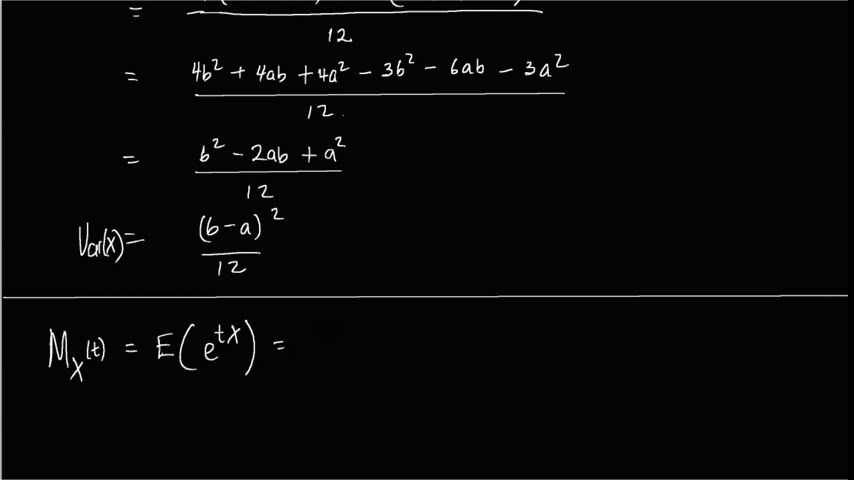 = 12
= 4b² + 4ab + 4a² − 3b² − 6ab − 3a² / 12
= b² − 2ab + a² / 12
Var(X) = (b − a)² / 12
M_X(t) = E(e^{tX}) =